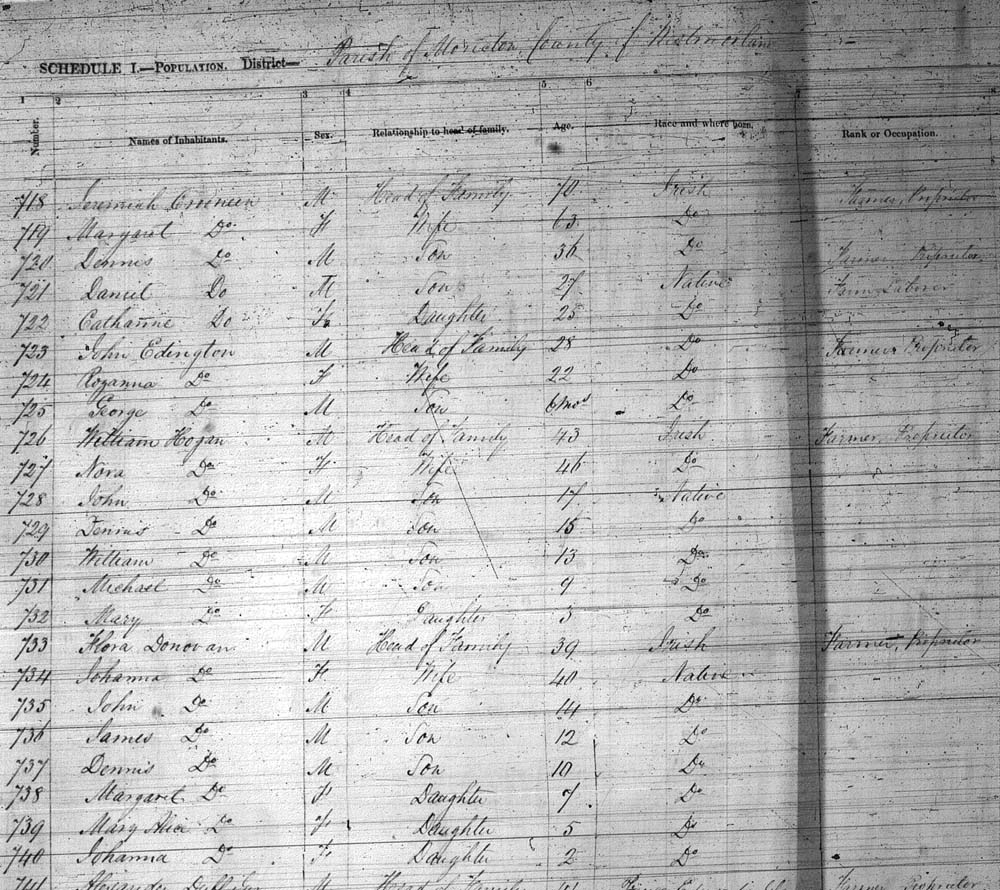 Parish of Moncton, County of Westmorland
SCHEDULE I.—POPULATION. District—
1 2 3 4 5 6 7 8
Number. Names of Inhabitants. Sex. Relationship to head of family. Age. Race and where born. Rank or Occupation.
718 Jeremiah M Head of Family 70 Irish Farmer, Proprietor
719 Margaret Do F Wife 63 Do
720 Dennis Do M Son 36 Do Farmer Proprietor
721 Daniel Do M Son 27 Native Farm Laborer
722 Catharine Do F Daughter 25 Do
723 John Edington M Head of Family 28 Do Farmer Proprietor
724 Rozanna Do F Wife 22 Do
725 George Do M Son 6 mos Do
726 William Hogan M Head of Family 43 Irish Farmer, Proprietor
727 Nora Do F Wife 46 Do
728 John Do M Son 17 Native
729 Dennis Do M Son 15 Do
730 William Do M Son 13 Do
731 Michael Do M Son 9 Do
732 Mary Do F Daughter 3 Do
733 Flora Donovan M Head of Family 39 Irish Farmer, Proprietor
734 Johanna Do F Wife 40 Native
735 John Do M Son 14 Do
736 James Do M Son 12 Do
737 Dennis Do M Son 10 Do
738 Margaret Do F Daughter 7 Do
739 Mary Alice Do F Daughter 5 Do
740 Johanna Do F Daughter 2 Do
741 Alexander M Head of Family Farmer Proprietor